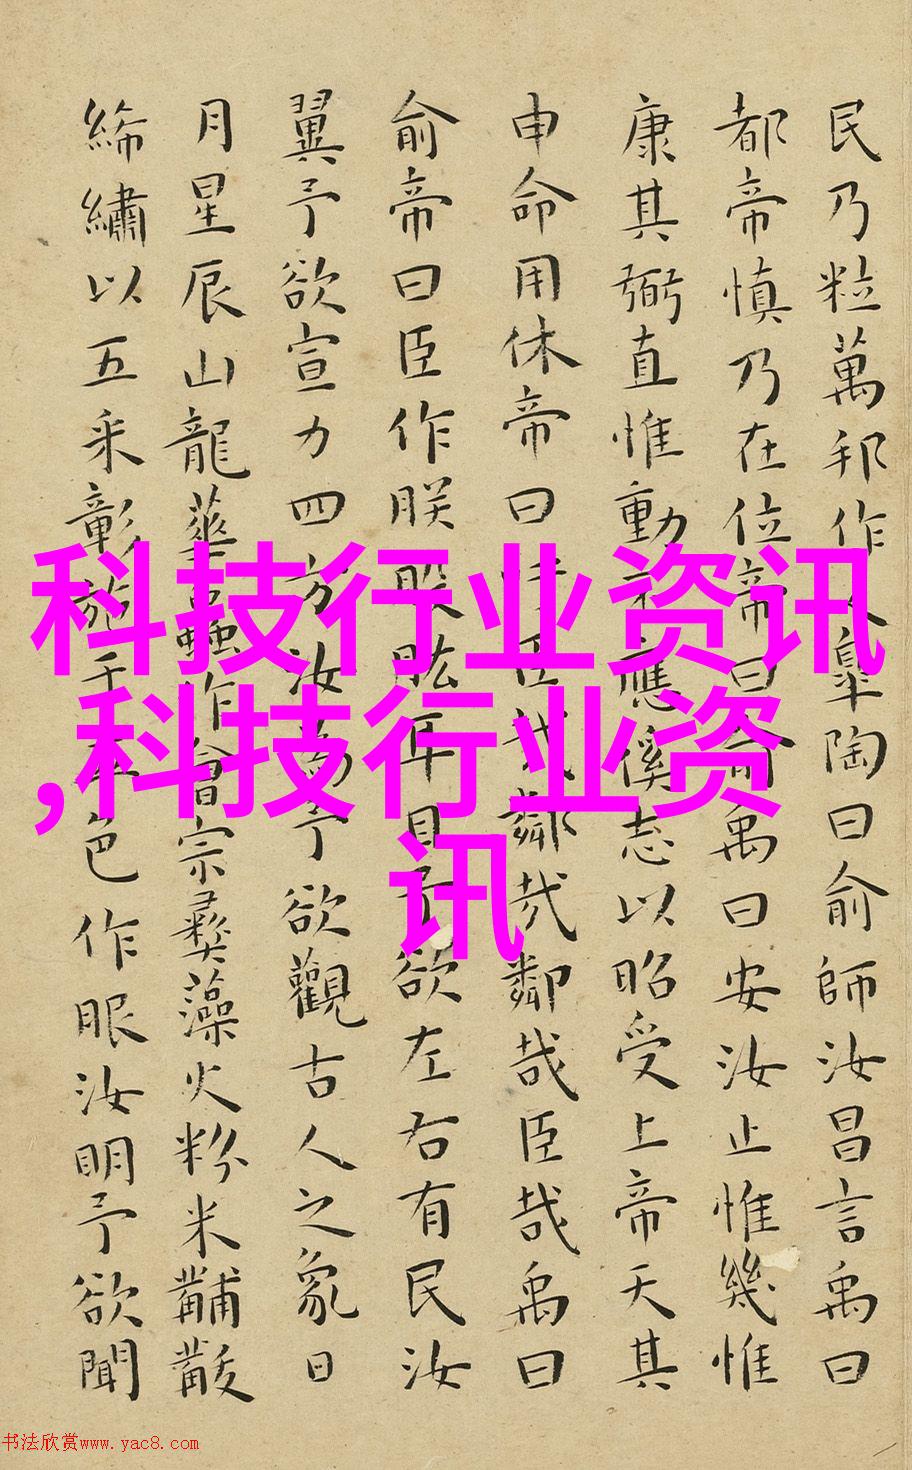 民乃粒萬邦作乂皐陶曰俞師汝昌言禹曰
都帝慎乃在位帝曰俞禹曰安汝止惟幾惟
康其弼直惟動丕應徯志以昭受上帝天其
申命用休帝曰吁臣哉鄰哉鄰哉臣哉禹曰
俞帝曰臣作朕股肱耳目予欲左右有民汝
翼予欲宣力四方汝為予欲觀古人之象日
月星辰山龍華蟲作會宗彝藻火粉米黼黻
絺繡以五采彰施于五色作服汝明予欲聞
科技行业资讯
,科技行业资
讯
书法欣赏www.yac8.com